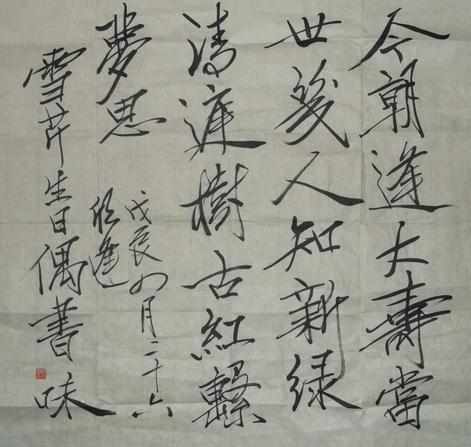 今朝逢大壽當
世幾人知新綠
清庭樹古紅繫
夢思
戊辰四月二十六
欣逢
雪芹生日偶書 味